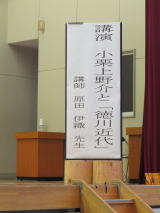 講演 小栗上野介と「徳川近代」
講師 原田 伊織 先生